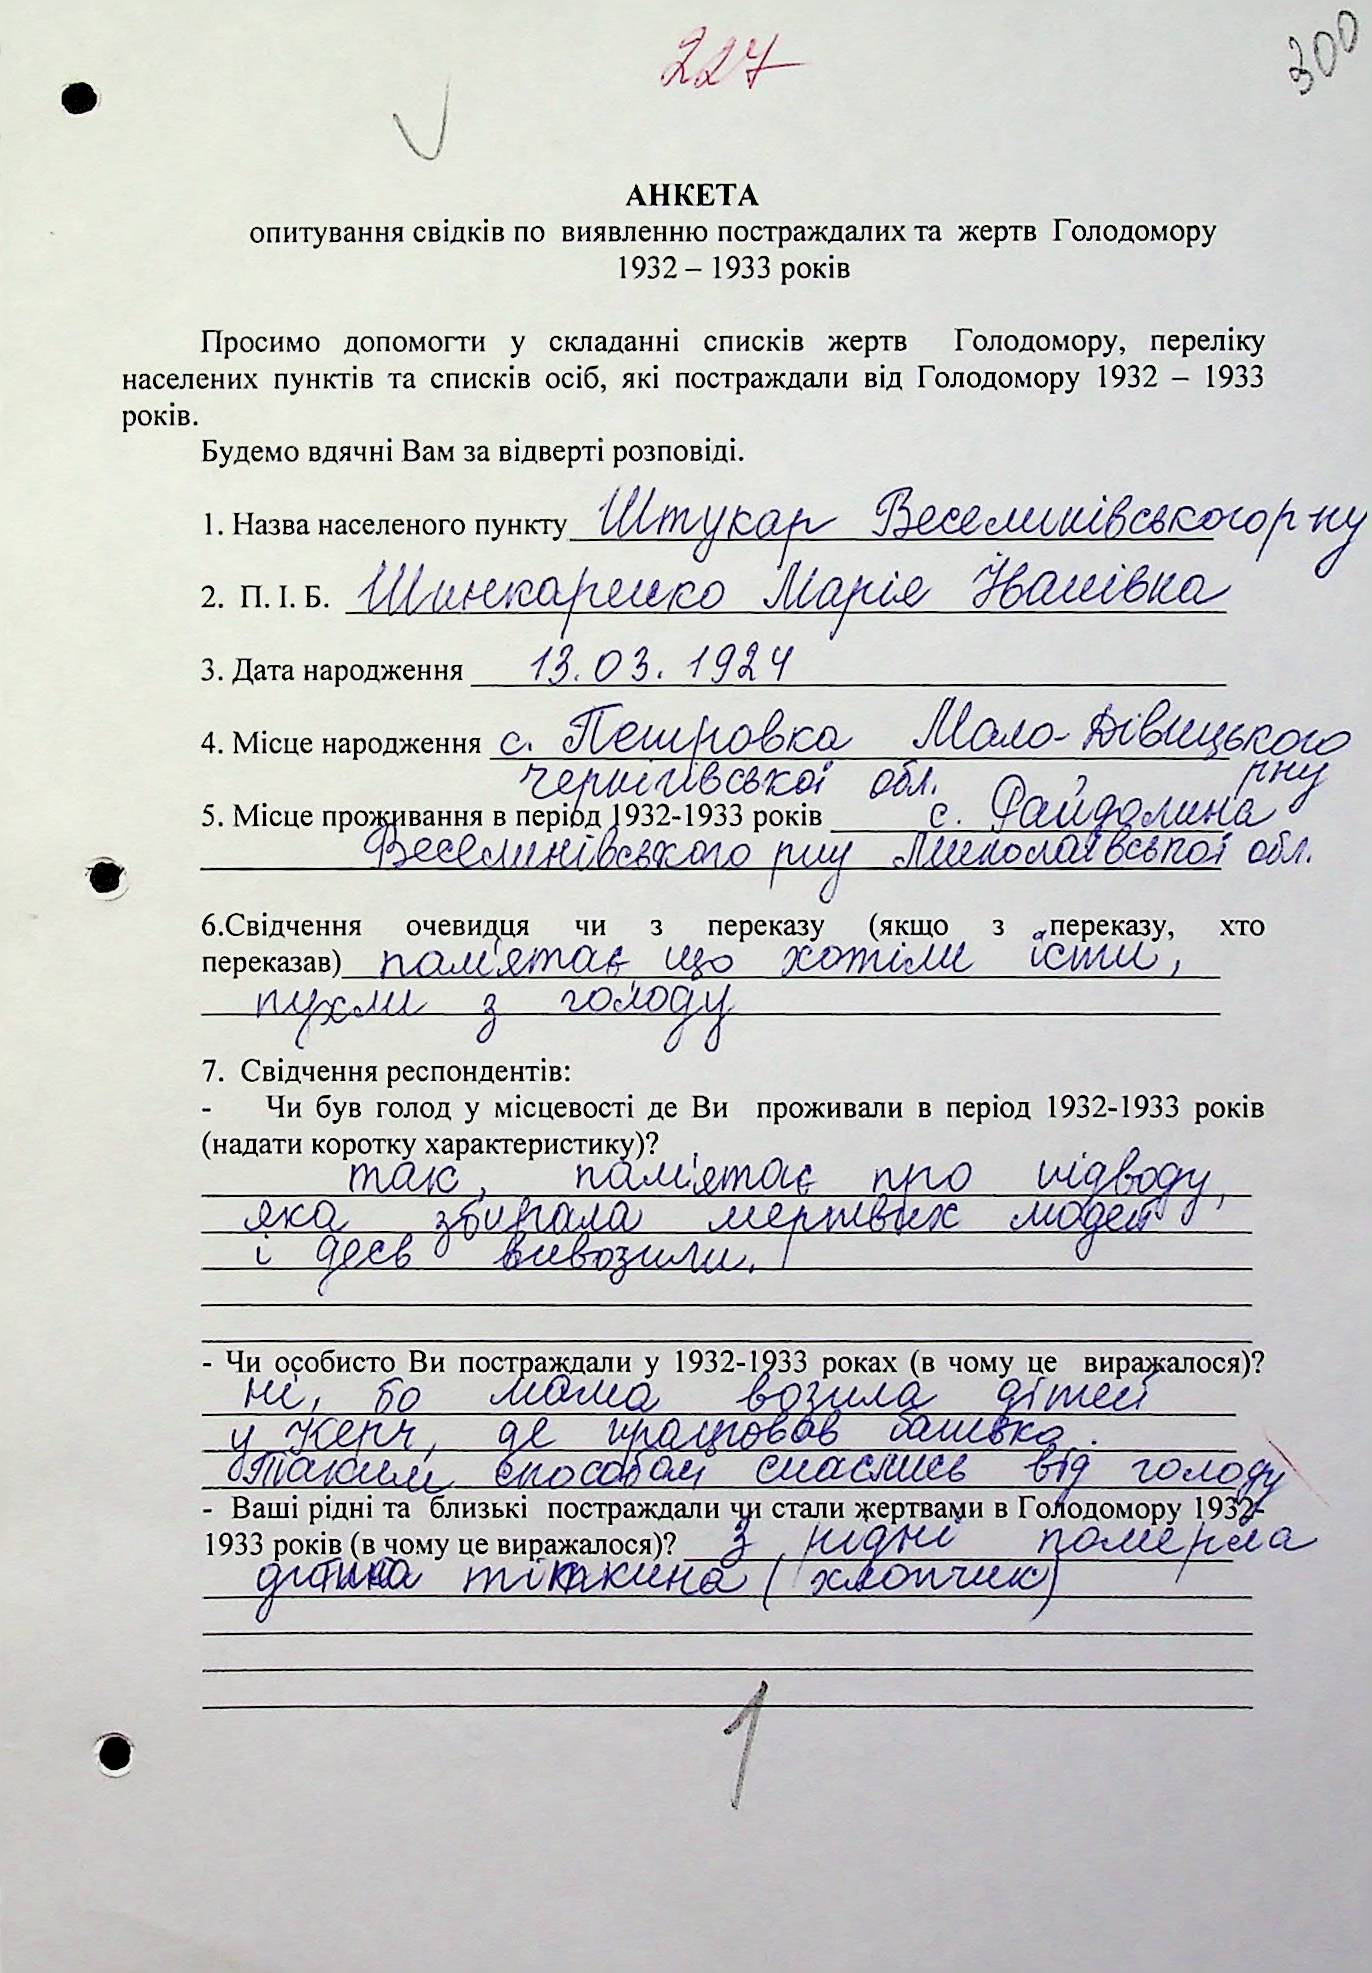 227
300
АНКЕТА
опитування свідків по виявленню постраждалих та жертв Голодомору
1932 – 1933 років
Просимо допомогти у складанні списків жертв Голодомору, переліку
населених пунктів та списків осіб, які постраждали від Голодомору 1932 – 1933
років.
Будемо вдячні Вам за відверті розповіді.
1. Назва населеного пункту Штукар Веселинівського р-ну
2. П. І. Б. Шинкаренко Марія Іванівна
3. Дата народження 13.03.1924
4. Місце народження с. Петровка Мало-Дівицького
р-ну
чернігівської обл.
5. Місце проживання в період 1932-1933 років с. Райдолина
Веселинівського р-ну Миколаївської обл.
6.Свідчення очевидця чи з переказу (якщо з переказу, хто
переказав) пам'ятає що хотіли їсти,
пухли з голоду
7. Свідчення респондентів:
- Чи був голод у місцевості де Ви проживали в період 1932-1933 років
(надати коротку характеристику)?
так, пам'ятає про підводу,
яка збирала мертвих людей
і десь вивозили.
- Чи особисто Ви постраждали у 1932-1933 роках (в чому це виражалося)?
ні, бо мама возила дітей
у Керч, де працював батько.
Таким способом спаслись від голоду
- Ваші рідні та близькі постраждали чи стали жертвами в Голодомору 1932-
1933 років (в чому це виражалося)? З рідні померла
дитина тіткина (хлопчик)
1